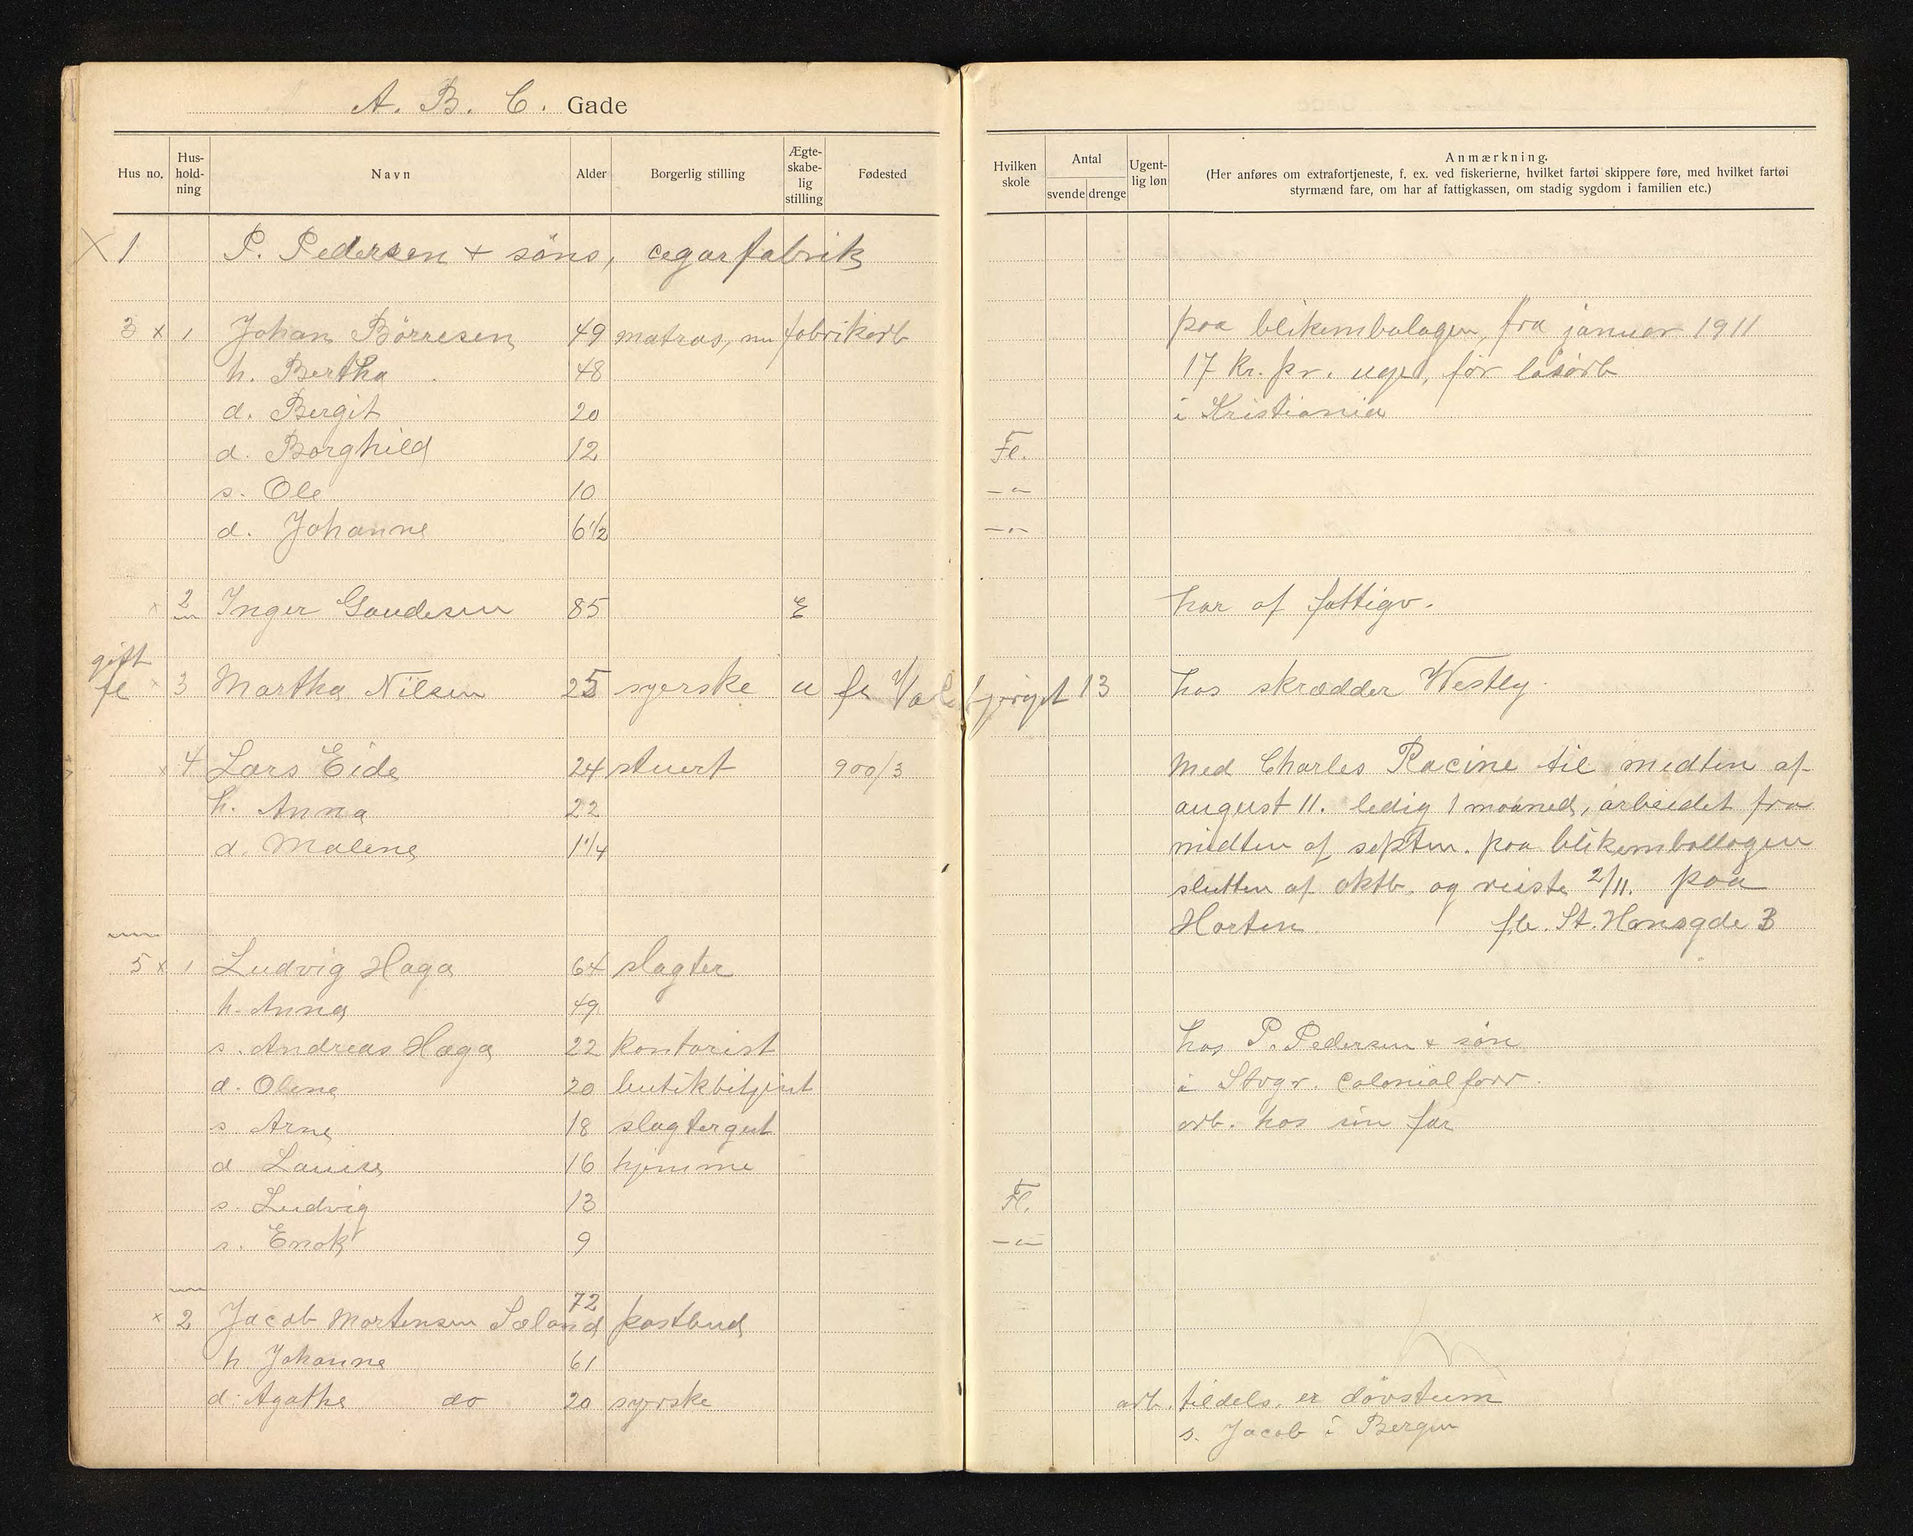 A. B. C. Gade
Hus no. Hus-hold-ning Navn Alder Borgerlig stilling Ægte-skabe-lig stilling Fødested Hvilken skole Antal svende drenge Ugent-lig løn Anmærkning.
(Her anføres om extrafortjeneste, f. ex. ved fiskerierne, hvilket fartøi skippere føre, med hvilket fartøi
styrmænd fare, om har af fattigkassen, om stadig sygdom i familien etc.)
X 1 P. Pedersen + søns, cegarfabrik
3 x 1 Johan Børresen 49 matros, nu fabrikarb paa blikembalagen, fra januar 1911
h. Bertha 48 17 kr. pr. uge, før løsarb
d. Bergit 20 i Kristiania
d. Borghild 12 Fl.
s. Ole 10 -"-
d. Johanne 6 1/2 -"-
x 2 Inger Gaudesen 85 E har af fattigv.
gift
fl x 3 Martha Nilsen 25 syerske u fl 13 hos skrædder Westly.
x 4 Lars Eide 24 stuert 900/3 Med Charles Racine til midten af
h. Anna 22 august 11. ledig 1 maaned, arbeidet fra
d. Malene 1 1/4 midten af septem. paa blikemballagen
slutten af oktb. og reiste 2/11. paa
Horten fl. St. Hansgde 3
5 x 1 Ludvig Haga 64 slagter
h. Anna 49
s. Andreas Haga 22 kontorist hos P. Pedersen + søn
d. Olene 20 butikbitjent i Stvgr. Colonialforr.
s Arne 18 slagtergut arb. hos sin far
d Louise 16 hjemme
s. Ludvig 13 Fl.
s. Enok 9 -"-
x 2 Jacob Mortensen Sæland 72 postbud
h Johanne 61
d. Agathe do 20 syerske arb. tildels, er døvstum
s. Jacob i Bergen